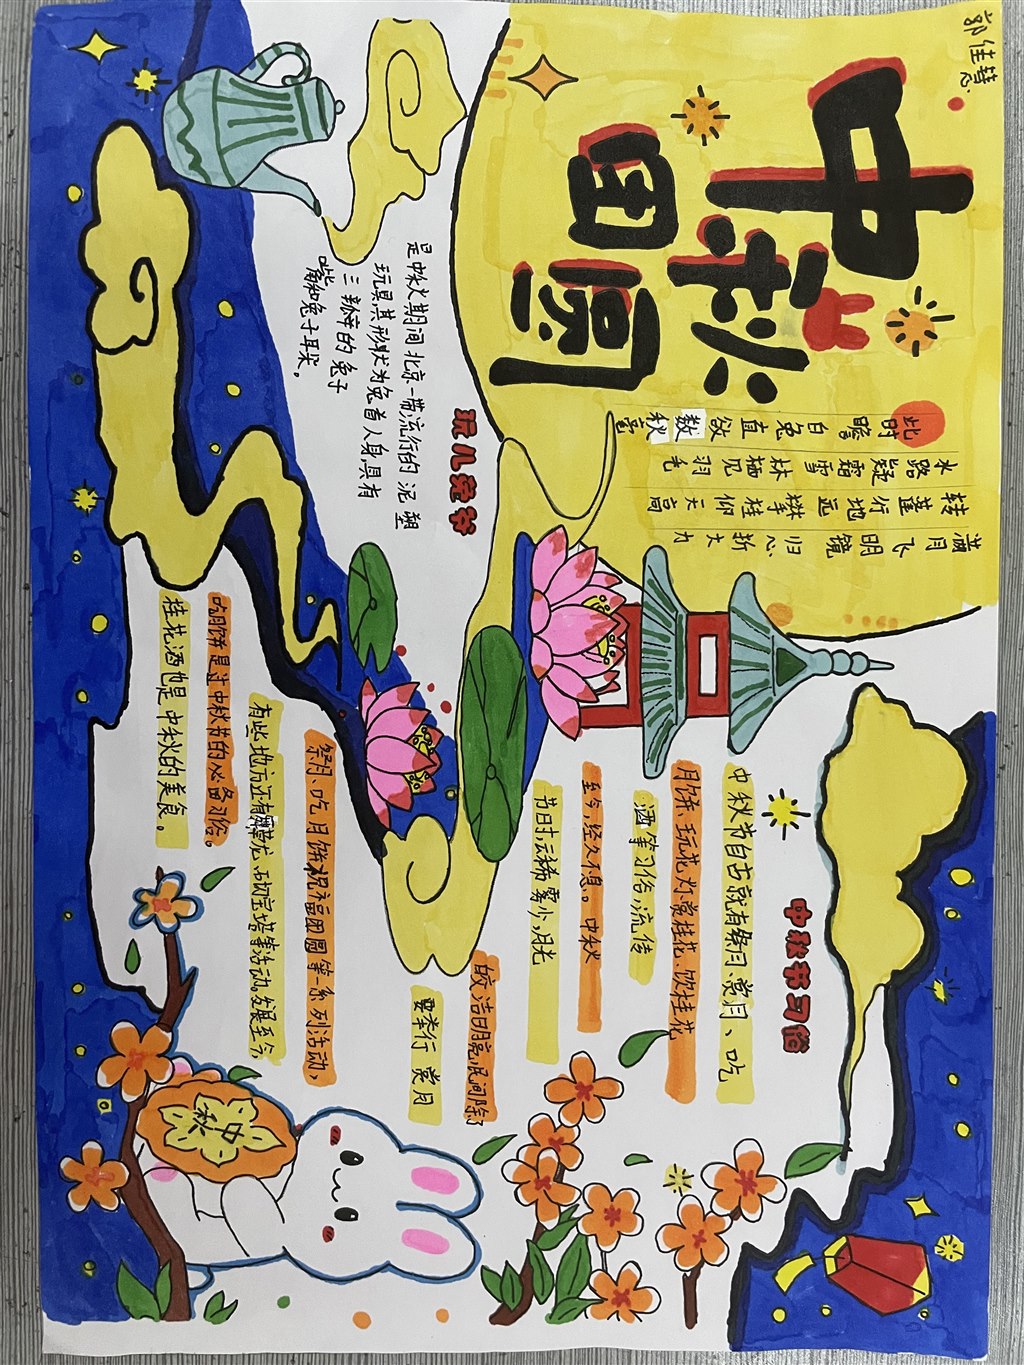 郭佳慧
中秋
团圆
满月飞明镜归心折大刀
转蓬行地远攀桂仰天高
水路疑霜雪林栖见羽毛
此时瞻白兔直欲数秋毫
玩儿兔爷
是中秋期间北京一带流行的泥塑
玩具,其形状为兔首人身,具有
三瓣的兔子
嘴和兔子耳朵。
中秋节习俗
中秋节自古就有祭月、赏月、吃
月饼、玩花灯、赏桂花、饮桂花
酒等习俗,流传
至今,经久不息。中秋
节日时,云稀雾少,月光
皎洁明亮,民间除了
要举行赏月
祭月、吃月饼祝福团圆等一系列活动,
有些地方还有舞草龙、砌宝塔等活动。发展至今,
吃月饼是过中秋节的必备习俗。
桂花酒也是中秋的美食。
中秋